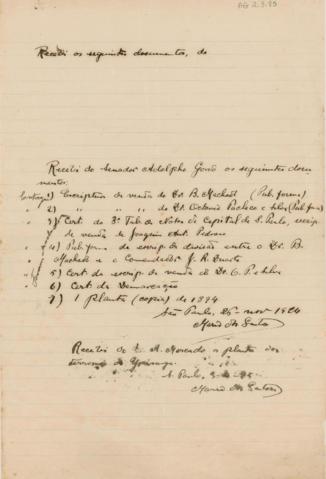 AG 2.3.95
Recebi os seguintes documentos, do
Recebi do Senador Adolpho Gordo os seguintes docu
mentos:
1) Escriptura de venda do Dr. B. Machado (Pub. forma)
2) " " " do Dr. Octavio Pacheco e Silva (Pub. for)
3) Cert. do 3º Tab. de Notas da Capital de S. Paulo, escrip.
de venda de Joaquim Ant. Pedroso
4) Pub. forma de escrip. de divisão entre o Dr. B.
Machado e o Comendador J. R. Duarte
5) Cert. da escrip. de venda do Dr. O. P. e Silva
6) Cert. da Demarcação
7) 1 planta (copia) de 1894
São Paulo, 25 - nov 1924
Mario dos Santos
Recebi de A. a planta dos
terrenos do Ypiranga
S. Paulo,
Mario dos Santos